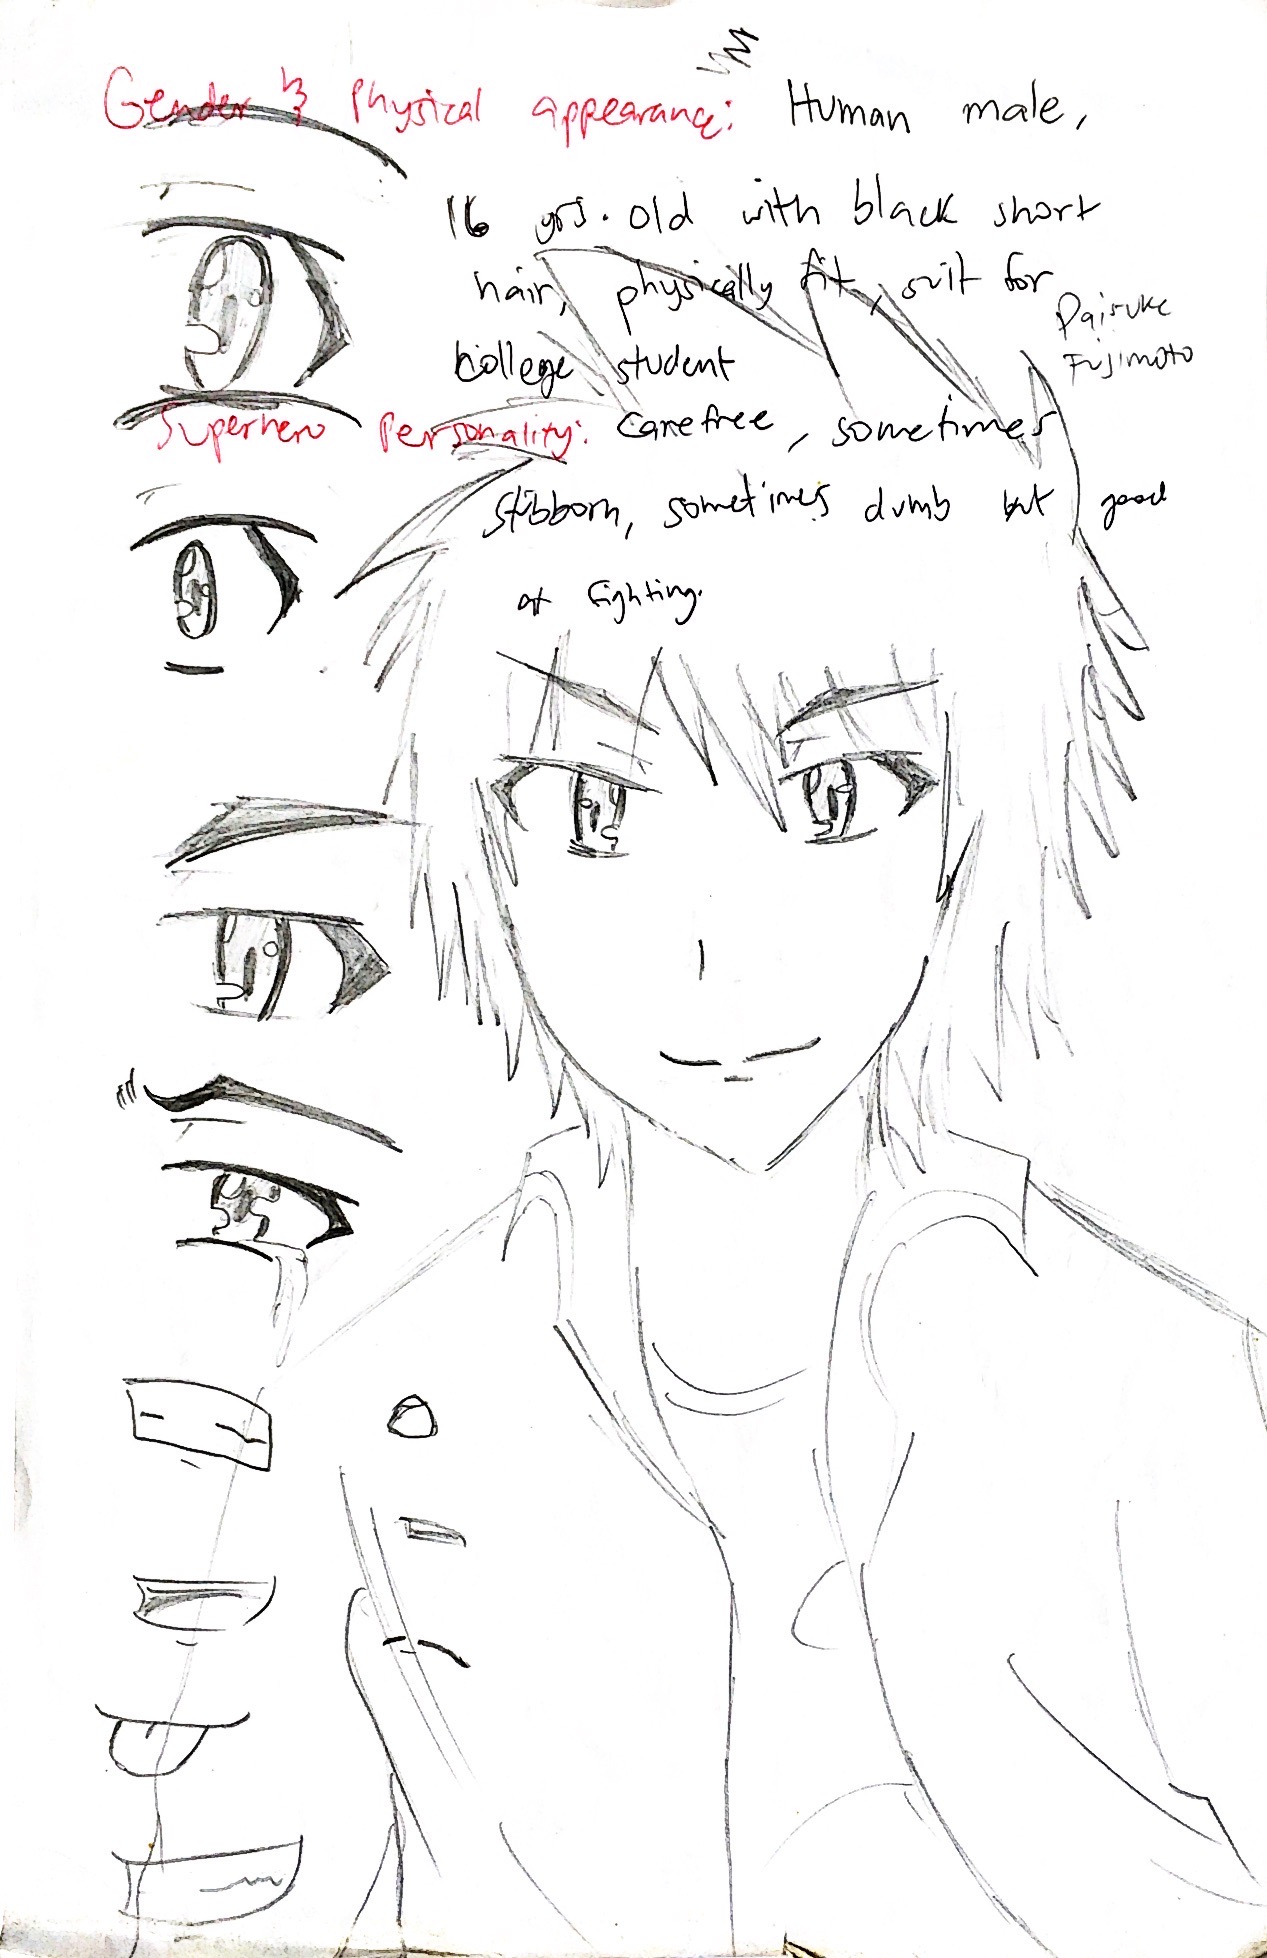 Gender & Physical appearance: Human male,
16 yrs. old with black short
hair, physically fit, suit for
college student
Daisuke
Fujimoto
Superhero Personality: carefree, sometimes
stibborn, sometimes dumb but good
at fighting.